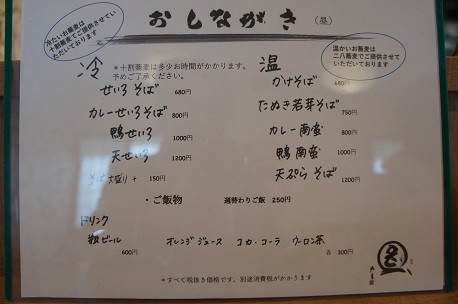 おしながき（昼）
冷たいお蕎麦は
十割蕎麦でご提供させてい
ただいております
温かいお蕎麦は
二八蕎麦でご提供させて
いただいております
冷
＊十割蕎麦は多少お時間がかかります。
予めご了承ください。
せいろそば 680円
カレーせいろそば 800円
鴨せいろ 1000円
天せいろ 1200円
そば大盛り + 150円
温
かけそば 680円
たぬき若芽そば 750円
カレー南蛮 800円
鴨南蛮 1000円
天ぷらそば 1200円
・ご飯物 週替わりご飯 250円
ドリンク
瓶ビール 600円
オレンジジュース コカ・コーラ ウーロン茶 各 300円
＊すべて税抜き価格です。別途消費税がかかります